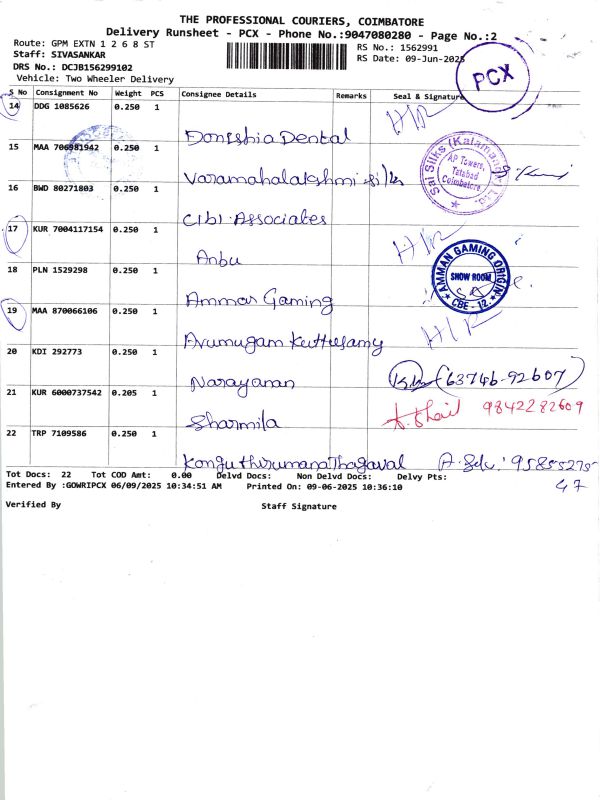 THE PROFESSIONAL COURIERS, COIMBATORE
Delivery Runsheet - PCX - Phone No.:9047080280 - Page No.:2
Route: GPM EXTN 1 2 6 8 ST
RS No.: 1562991
Staff: SIVASANKAR
RS Date: 09-Jun-2025
DRS No.: DCJB156299102
Vehicle: Two Wheeler Delivery
PCX
S No Consignment No Weight PCS Consignee Details Remarks Seal & Signature
14 DDG 1085626 0.250 1
Donishia Dental
15 MAA 706981942 0.250 1
Varamahalakshmi silks
Sai Silks (Kalamandir) Ltd.
AP Towers,
Tatabad
Coimbatore.
16 BWD 80271803 0.250 1
Cibi Associates
17 KUR 7004117154 0.250 1
Anbu
18 PLN 1529298 0.250 1
Ammar Gaming
AMMAN GAMING ORIGIN
SHOW ROOM
CBE - 12.
19 MAA 870066106 0.250 1
Arumugam Kuttusamy
20 KDI 292773 0.250 1
Narayanan
(63746-92607)
21 KUR 6000737542 0.205 1
Sharmila
9842282609
22 TRP 7109586 0.250 1
Konguthirumana Thagaval
95855275
47
Tot Docs: 22 Tot COD Amt: 0.00 Delvd Docs: Non Delvd Docs: Delvy Pts:
Entered By :GOWRIPCX 06/09/2025 10:34:51 AM Printed On: 09-06-2025 10:36:10
Verified By Staff Signature